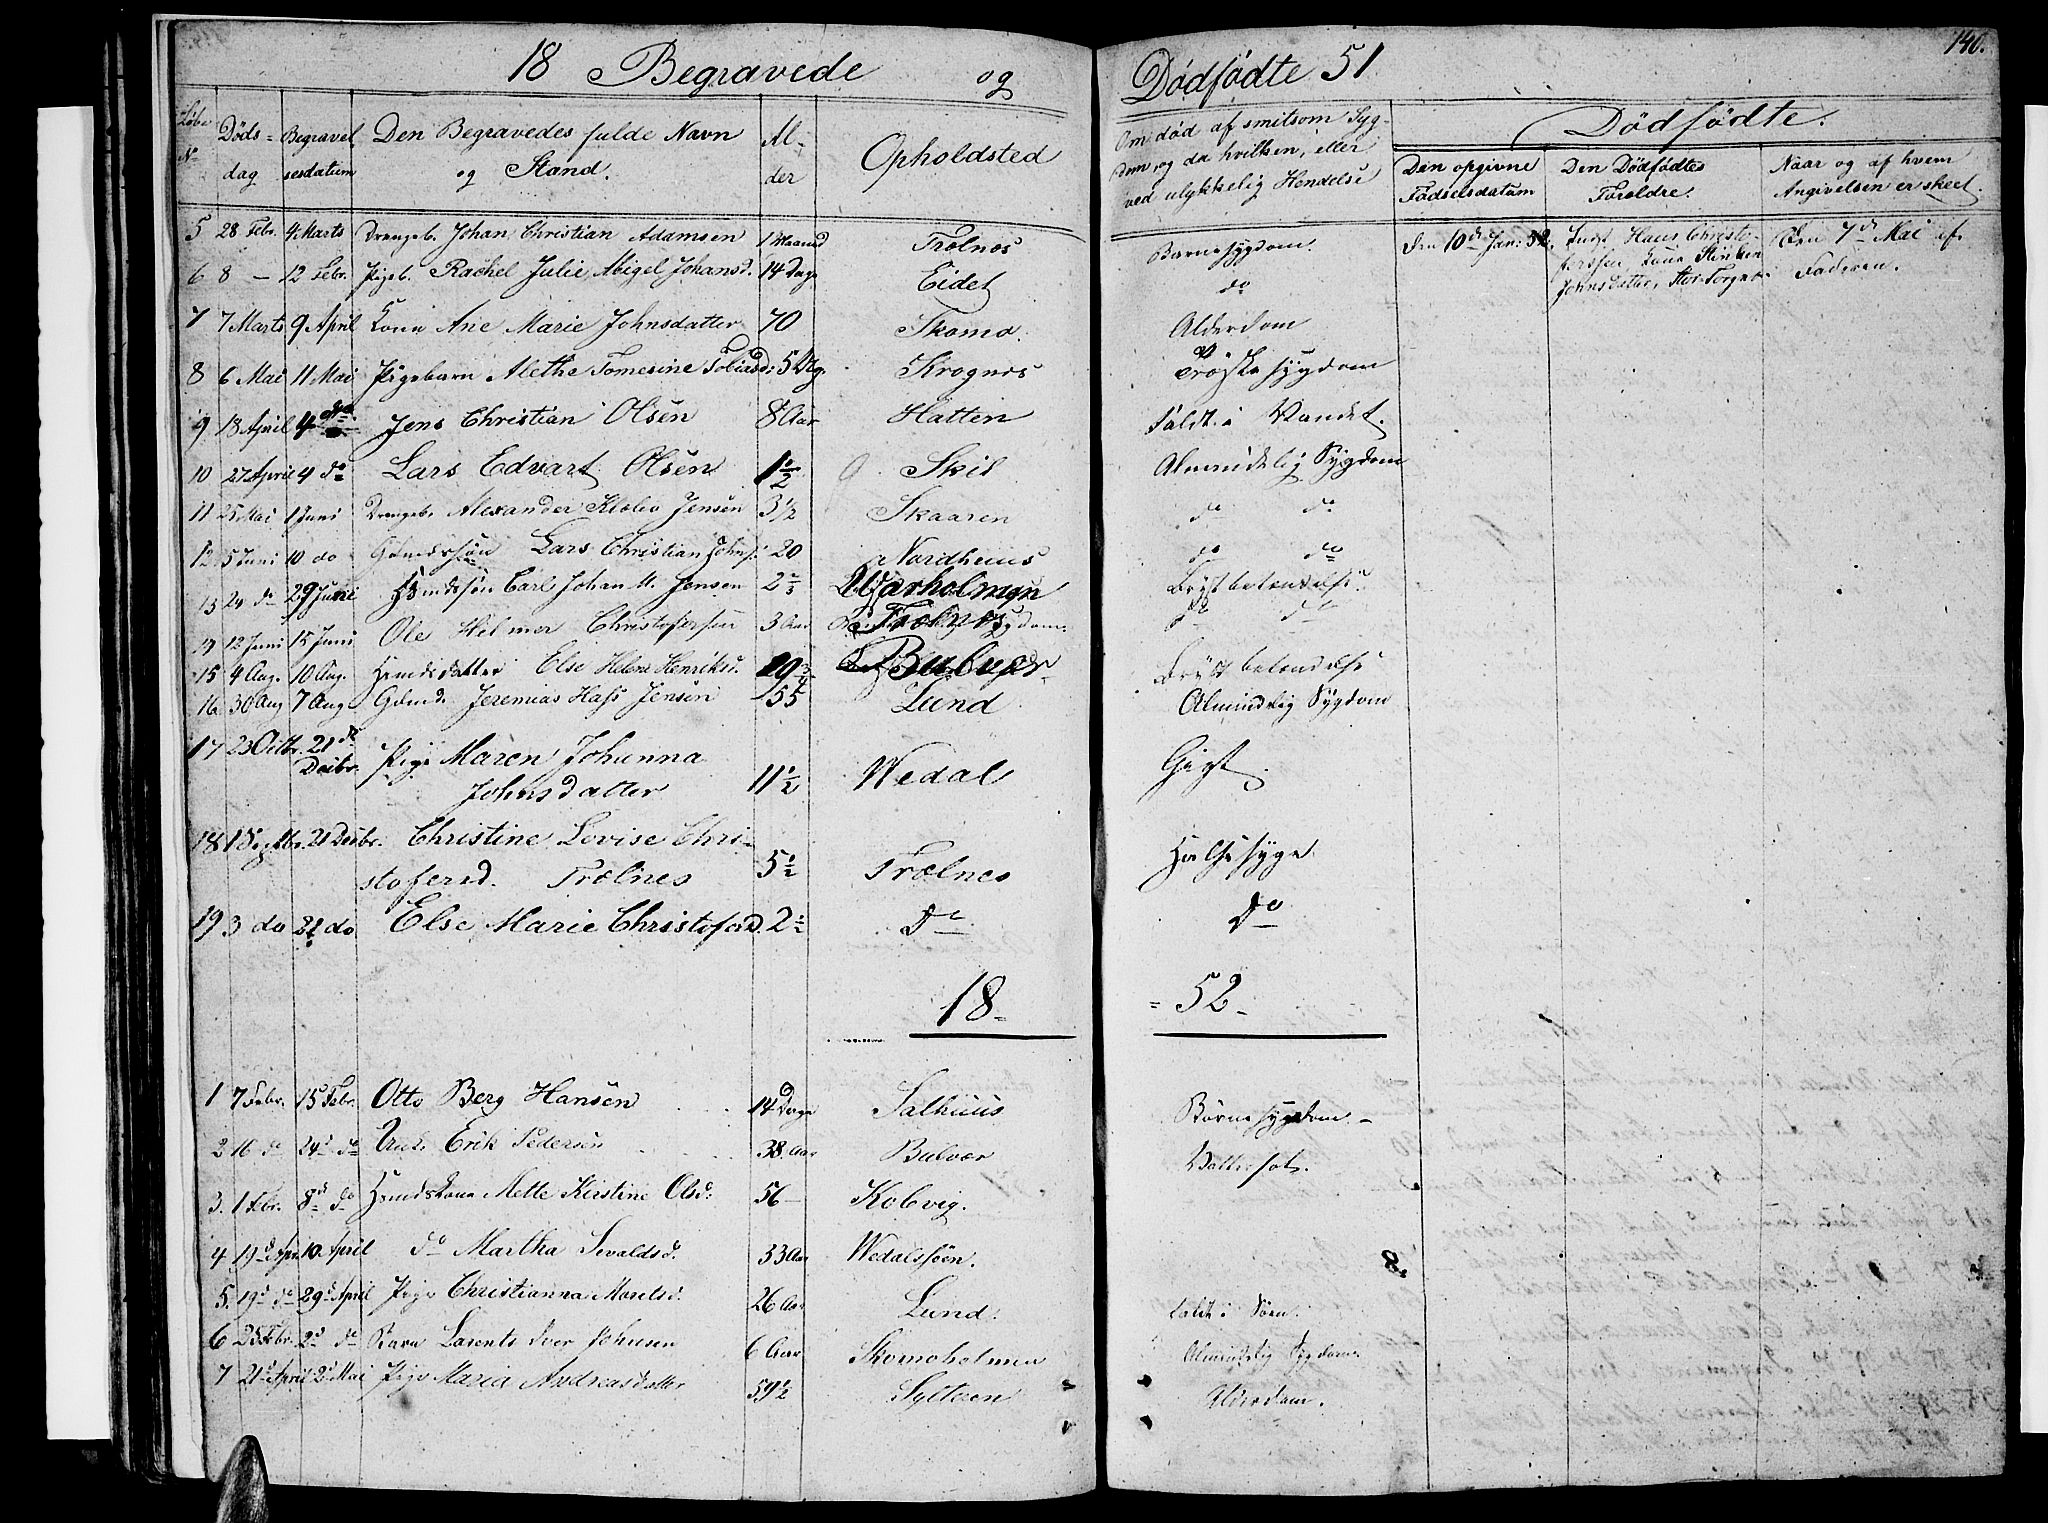 140.
18 Begravede og Dødfødte 51
Løbe No
Døds-dag
Begravelsesdatum
Den Begravedes fulde Navn og Stand.
Al-der
Opholdsted
Om død af smitsom Syg-
dom, og da hvilken, eller
ved ulykkelig Hendelse
Dødfødte.
Den opgivne Fødselsdatum
Den Dødfødtes Forældre.
Naar og af hvem Angivelsen er skeet.
5 28 Febr. 4 Marts Drengeb. Johan Christian Adamsen 1 Maaned Trælnæs Barnesygdom. den 10de Jan: 52 Indst Hans Christo- Den 7de Mai af
6 8 — 12 Febr. Pigeb. Rachel Julie Abigel Johansd. 14 Dage Eidet do fersen Kone Johnsdatter, Faderen.
7 7 Marts 9 April Kone Ane Marie Johnsdatter 70 Skomo. Alderdom
8 6 Mai 11 Mai Pigebarn Alethe Tomesine Tobiasd: 5 Krognes Trøskesygdom
9 18 April 4 do Jens Christian Olsen 8 Aar Hatten Faldt i Vandet.
10 27 April 4 do Lars Edvart Olsen 1½ Skil Almindelig Sygdom
11 25 Mai 1 Juni Drengeb. Alexander Jensen 3½ Skaaren do do
12. 5 Juni 10 do Gdmdssøn Lars Christian Johns: 20 Nordhuus do do
13 24 do 29 Junie Hmdssøn Carl Johan M. Jensen 2 Brystbetændelse.
12 Juni 15 Juni Ole Hilmer Christofersen 3 Aar do do
15 4 Aug. 10 Aug. Hmdsdatter Else Helene Henriksd. Bulvær Brystbetendelse
16 30 Aug 7 Aug Gdmd. Jeremias Hass Jensen 55 Lund Almindelig Sygdom
17 23 Octb. 21de Decbr. Pige Maren Johanna
Johnsdatter 11½ Wedal Gigt.
18 1 Septbr. 21 Decbr. Christine Lovise Chri-
stofersd. Trælnes 5½ Trælnes Halssyge
19 3 do 21 do Else Marie Christofersd. 2½ do do
18 - = 52 -
1 7 Febr. 15 Febr. Otto Berg Hansen 14 Dage Salhuus Børnesygdom -
2 16 do 24d do Erik Pedersen 38 Aar Bulvær Vattersot.
3. 1 Febr. 8d do Hmdskone Mette Kirstine Olsd: 56 — Kolvig.
4 19d 10 April do Martha Sivaldsd. 33 Aar Wedalssøen.
5. 19d do 29d April Pige Christianna 26 Aar Lund. Faldt i Søen.
6 25 Febr. 2d do Barn Johnsen 6 Aar Skomoholmen Almindelig Sygdom.
7 21d April 2d Mai Pige Maria Andreasdatter 59½ Sylteren Alderdom.